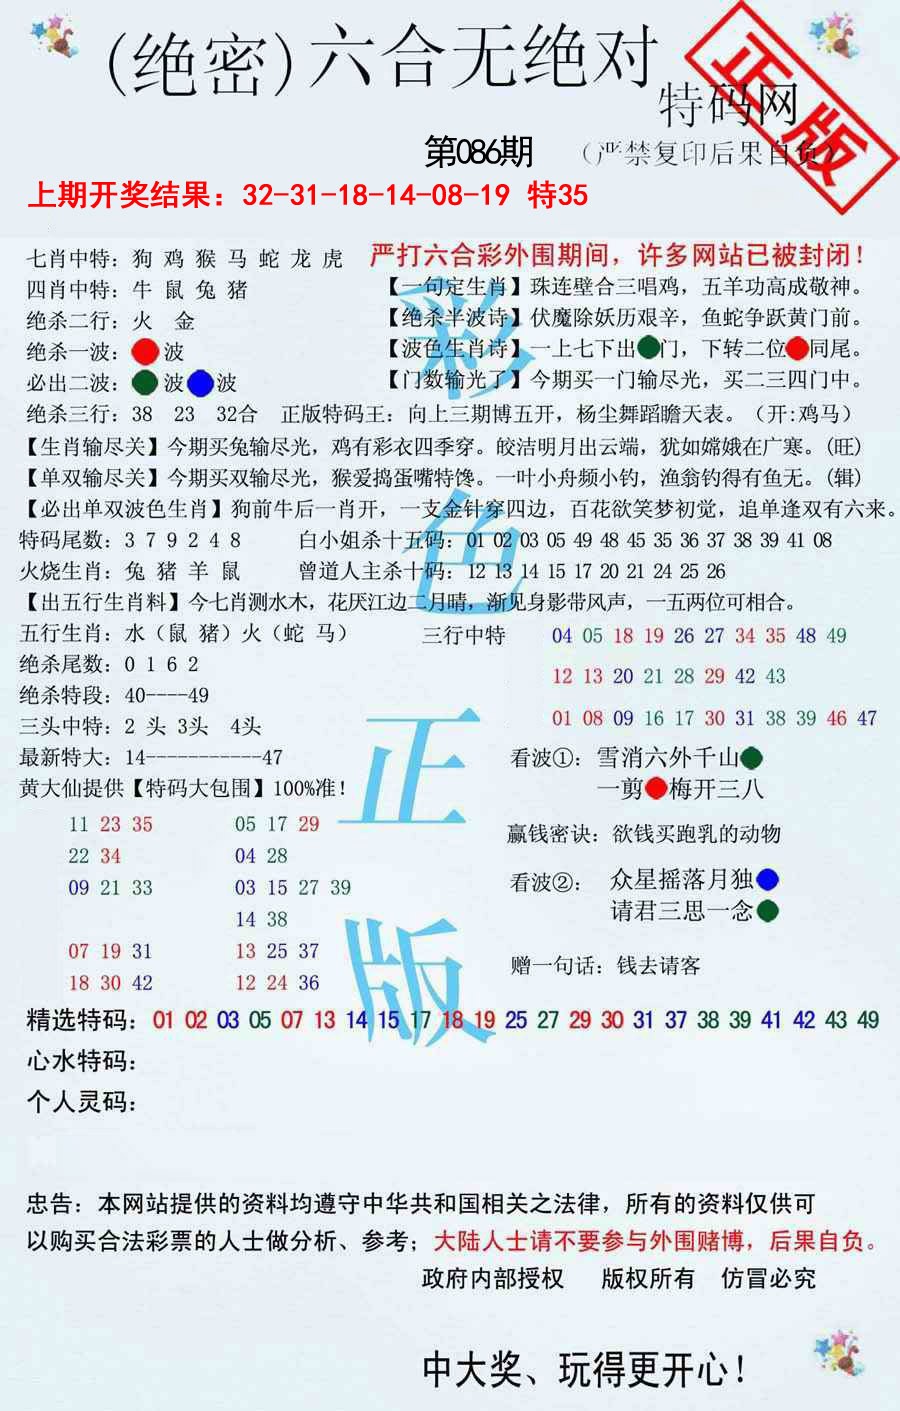 (绝密)六合无绝对
特码网
正版
第086期
(严禁复印后果自负)
上期开奖结果：32-31-18-14-08-19 特35
七肖中特：狗 鸡 猴 马 蛇 龙 虎
严打六合彩外围期间，许多网站已被封闭！
四肖中特：牛 鼠 兔 猪
【一句定生肖】珠连壁合三唱鸡，五羊功高成敬神。
绝杀二行：火 金
【绝杀半波诗】伏魔除妖历艰辛，鱼蛇争跃黄门前。
绝杀一波：波
【波色生肖诗】一上七下出门，下转二位同尾。
必出二波：波波
【门数输光了】今期买一门输尽光，买二三四门中。
绝杀三行：38 23 32合 正版特码王：向上三期博五开，杨尘舞蹈瞻天表。（开:鸡马）
【生肖输尽关】今期买兔输尽光，鸡有彩衣四季穿。皎洁明月出云端，犹如嫦娥在广寒。(旺)
【单双输尽关】今期买双输尽光，猴爱捣蛋嘴特馋。一叶小舟频小钓，渔翁钓得有鱼无。(辑)
【必出单双波色生肖】狗前牛后一肖开，一支金针穿四边，百花欲笑梦初觉，追单逢双有六来。
特码尾数：3 7 9 2 4 8 白小姐杀十五码：01 02 03 05 49 48 45 35 36 37 38 39 41 08
火烧生肖：兔 猪 羊 鼠 曾道人主杀十码：12 13 14 15 17 20 21 24 25 26
【出五行生肖料】今七肖测水木，花厌江边二月晴，渐见身影带风声，一五两位可相合。
五行生肖：水（鼠 猪）火（蛇 马）
三行中特 04 05 18 19 26 27 34 35 48 49
绝杀尾数：0 1 6 2
12 13 20 21 28 29 42 43
绝杀特段：40----49
三头中特：2 头 3头 4头
01 08 09 16 17 30 31 38 39 46 47
最新特大：14-----------47
看波①：雪消六外千山
黄大仙提供【特码大包围】100%准！
一剪梅开三八
11 23 35 05 17 29
赢钱密诀：欲钱买跑乳的动物
22 34 04 28
09 21 33 03 15 27 39
看波②：众星摇落月独
14 38
请君三思一念
07 19 31 13 25 37
赠一句话：钱去请客
18 30 42 12 24 36
彩色正版
精选特码：01 02 03 05 07 13 14 15 17 18 19 25 27 29 30 31 37 38 39 41 42 43 49
心水特码：
个人灵码：
忠告：本网站提供的资料均遵守中华共和国相关之法律，所有的资料仅供可
以购买合法彩票的人士做分析、参考；大陆人士请不要参与外围赌博，后果自负。
政府内部授权 版权所有 仿冒必究
中大奖、玩得更开心！